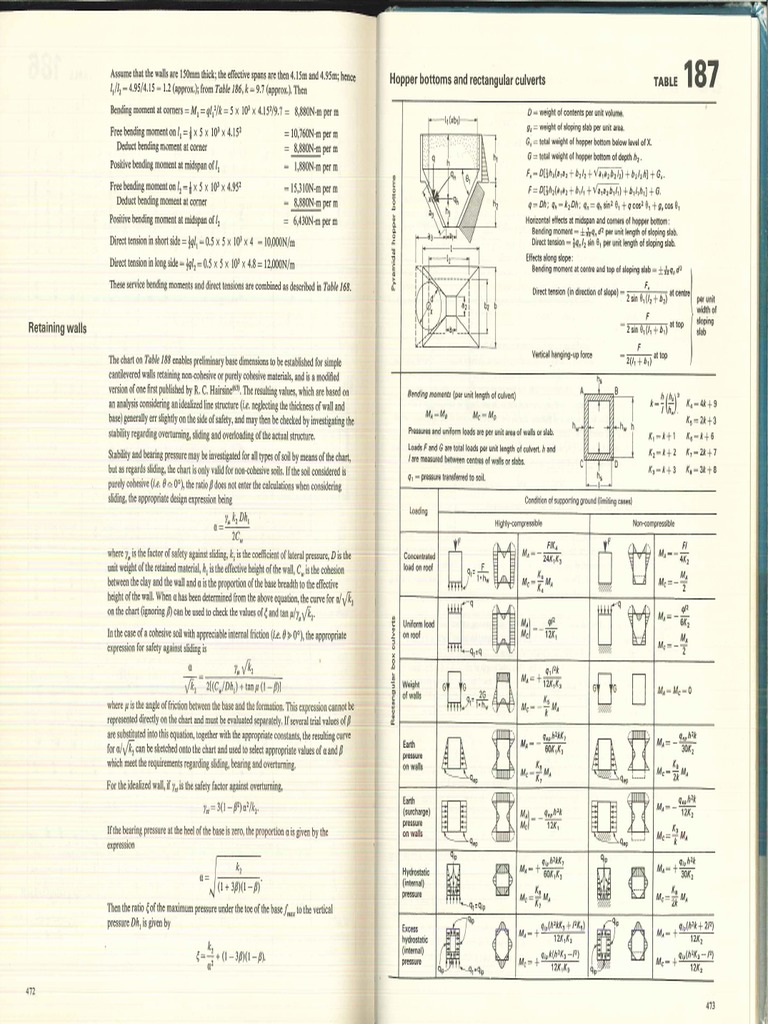 Assume that the walls are 150mm thick; the effective spans are then 4.15m and 4.95m; hence
l₁/l₂ = 4.95/4.15 = 1.2 (approx.); from Table 186, k = 9.7 (approx.). Then
Bending moment at corners = M₁ = ql₁²/k = 5 × 10³ × 4.15²/9.7 = 8,880N·m per m
Free bending moment on l₁ = ⅛ × 5 × 10³ × 4.15² = 10,760N·m per m
Deduct bending moment at corner = 8,880N·m per m
Positive bending moment at midspan of l₁ = 1,880N·m per m
Free bending moment on l₂ = ⅛ × 5 × 10³ × 4.95² = 15,310N·m per m
Deduct bending moment at corner = 8,880N·m per m
Positive bending moment at midspan of l₂ = 6,430N·m per m
Direct tension in short side = ½ql₁ = 0.5 × 5 × 10³ × 4 = 10,000N/m
Direct tension in long side = ½ql₂ = 0.5 × 5 × 10³ × 4.8 = 12,000N/m
These service bending moments and direct tensions are combined as described in Table 168.
Retaining walls
The chart on Table 188 enables preliminary base dimensions to be established for simple
cantilevered walls retaining non-cohesive or purely cohesive materials, and is a modified
version of one first published by R. C. Hairsine. The resulting values, which are based on
an analysis considering an idealized line structure (i.e. neglecting the thickness of wall and
base) generally err slightly on the side of safety, and may then be checked by investigating the
stability regarding overturning, sliding and overloading of the actual structure.
Stability and bearing pressure may be investigated for all types of soil by means of the chart,
but as regards sliding, the chart is only valid for non-cohesive soils. If the soil considered is
purely cohesive (i.e. θ ≏ 0°), the ratio β does not enter the calculations when considering
sliding, the appropriate design expression being
α = γᵤ k₂ Dh₁ / 2Cᵤ
where γᵤ is the factor of safety against sliding, k₂ is the coefficient of lateral pressure, D is the
unit weight of the retained material, h₁ is the effective height of the wall, Cᵤ is the cohesion
between the clay and the wall and α is the proportion of the base breadth to the effective
height of the wall. When α has been determined from the above equation, the curve for α/√k₂
on the chart (ignoring β) can be used to check the values of ξ and tan μ/γᵤ√k₂.
In the case of a cohesive soil with appreciable internal friction (i.e. θ ≫ 0°), the appropriate
expression for safety against sliding is
α/√k₂ = γᵤ√k₂ / 2[(Cᵤ/Dh₁) + tan μ (1 − β)]
where μ is the angle of friction between the base and the formation. This expression cannot be
represented directly on the chart and must be evaluated separately. If several trial values of β
are substituted into this equation, together with the appropriate constants, the resulting curve
for α/√k₂ can be sketched onto the chart and used to select appropriate values of α and β
which meet the requirements regarding sliding, bearing and overturning.
For the idealized wall, if γₒ is the safety factor against overturning,
γₒ = 3(1 − β²) α²/k₂.
If the bearing pressure at the heel of the base is zero, the proportion α is given by the
expression
α = √(k₂ / (1 + 3β)(1 − β)).
Then the ratio ξ of the maximum pressure under the toe of the base fmax to the vertical
pressure Dh₁ is given by
ξ = k₂/α² + (1 − 3β)(1 − β).
472
Hopper bottoms and rectangular culverts TABLE 187
Pyramidal hopper bottoms
D = weight of contents per unit volume.
gₛ = weight of sloping slab per unit area.
G = total weight of hopper bottom of depth h₂.
Horizontal effects at midspan and corners of hopper bottom:
per unit length of sloping slab.
per unit length of sloping slab.
Effects along slope:
Bending moment at centre and top of sloping slab
Direct tension (in direction of slope) = at centre
at top
per unit
width of
sloping
slab
Vertical hanging-up force = F / 2(l₁ + b₁) at top
Rectangular box culverts
Bending moments (per unit length of culvert)
M_A = M_B M_C = M_D
Pressures and uniform loads are per unit area of walls or slab.
Loads F and G are total loads per unit length of culvert. h and
l are measured between centres of walls or slabs.
q₁ = pressure transferred to soil.
K₄ = 4k + 9
K₅ = 2k + 3
K₁ = k + 1 K₆ = k + 6
K₂ = k + 2 K₇ = 2k + 7
K₃ = k + 3 K₈ = 3k + 8
Loading
Condition of supporting ground (limiting cases)
Highly-compressible Non-compressible
Concentrated
load on roof
Uniform load
on roof
Weight
of walls
M_A = M_C = 0
Earth
pressure
on walls
Earth
(surcharge)
pressure
on walls
Hydrostatic
(internal)
pressure
Excess
hydrostatic
(internal)
pressure
473